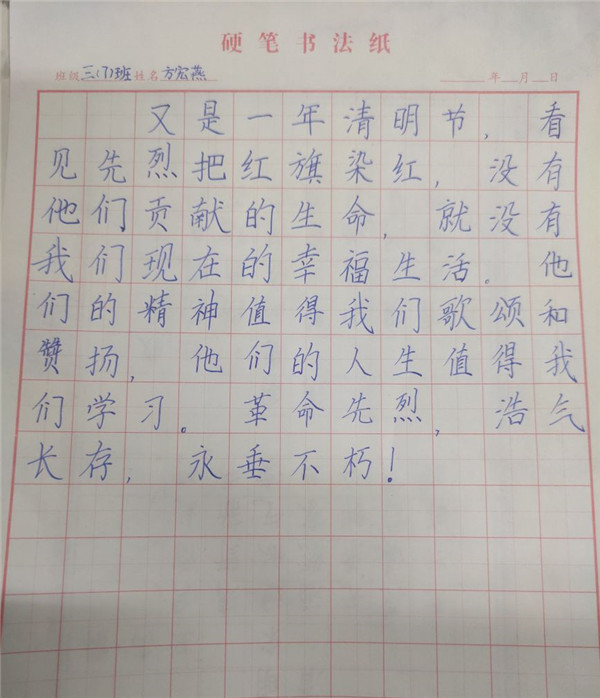 硬笔书法纸
班级三(7)班姓名方宏燕 年 月 日
又是一年清明节，看
见先烈把红旗染红，没有
他们贡献的生命，就没有
我们现在的幸福生活。他
们的精神值得我们歌颂和
赞扬，他们的人生值得我
们学习。革命先烈，浩气
长存，永垂不朽！